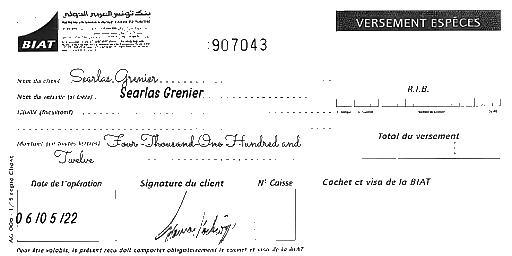 بنك تونس العربي الدولي
BIAT
VERSEMENT ESPÈCES
907043
Nom du client Searlas Grenier
Nom du remettant (si tiers) Searlas Grenier
R.I.B.
Libellé (facultatif)
Montant (en toutes lettres) Four Thousand One Hundred and
Twelve
Total du versement
Date de l'opération
Signature du client
N° Caisse
Cachet et visa de la BIAT
06/05/22
Pour être valable, le présent reçu doit comporter obligatoirement le cachet et visa de la BIAT